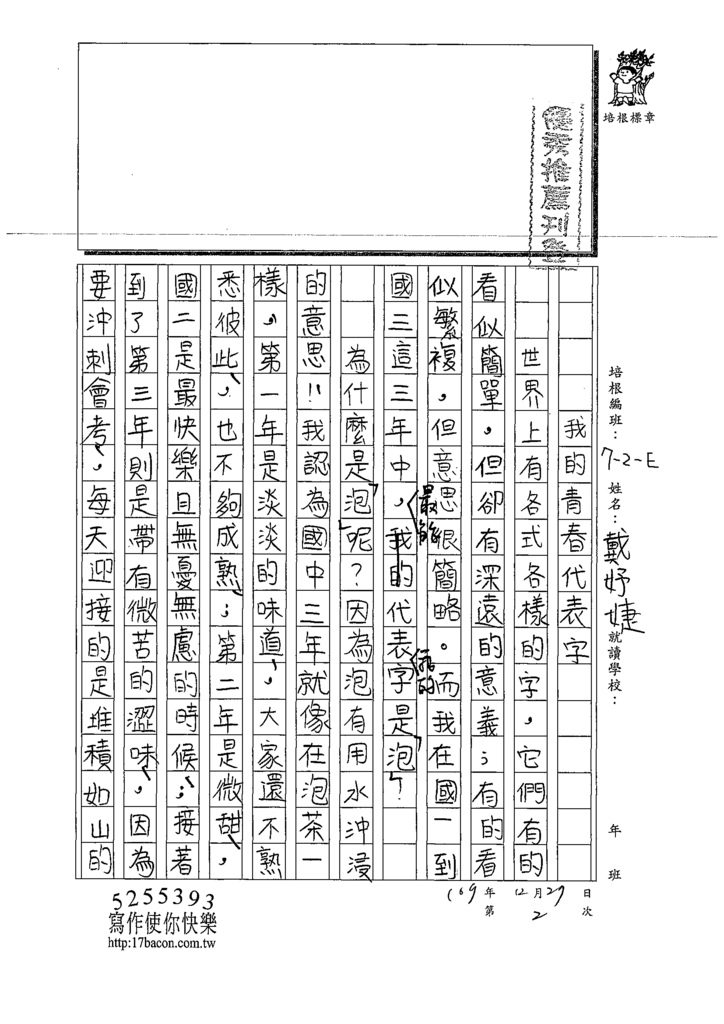 培根標章
優秀推薦刊登
培根編班：7-2-E 姓名：戴妤婕 就讀學校： 年 班
我的青春代表字
世界上有各式各樣的字，它們有的
看似簡單，但卻有深遠的意義；有的看
似繁複，但意思很簡略。而我在國一到
國三這三年中，最能我的代表字我的是「泡」！
為什麼是「泡」呢？因為泡有用水沖浸
的意思！！我認為國中三年就像在泡茶一
樣，第一年是淡淡的味道，大家還不熟
悉彼此，也不夠成熟；第二年是微甜，
國二是最快樂且無憂無慮的時候；接著
到了第三年則是帶有微苦的澀味，因為
要沖刺會考，每天迎接的是堆積如山的
109年12月27日
第2次
5255393
寫作使你快樂
http:17bacon.com.tw